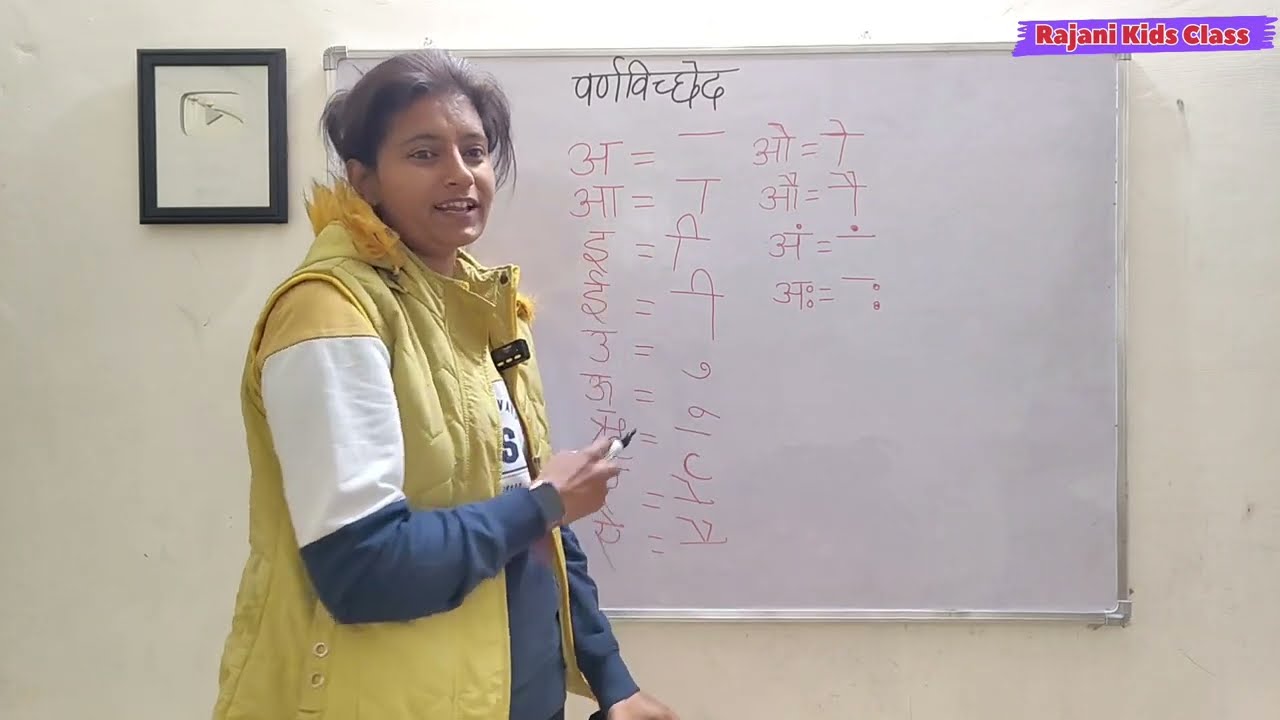 Rajani Kids Class
वर्णविच्छेद
अ = ‾
आ = ा
इ = ि
ई = ी
उ = ु
ऊ = ू
ऋ = ृ
= े
ऐ = ै
ओ = ो
औ = ौ
अं = ं
अः = ः
S